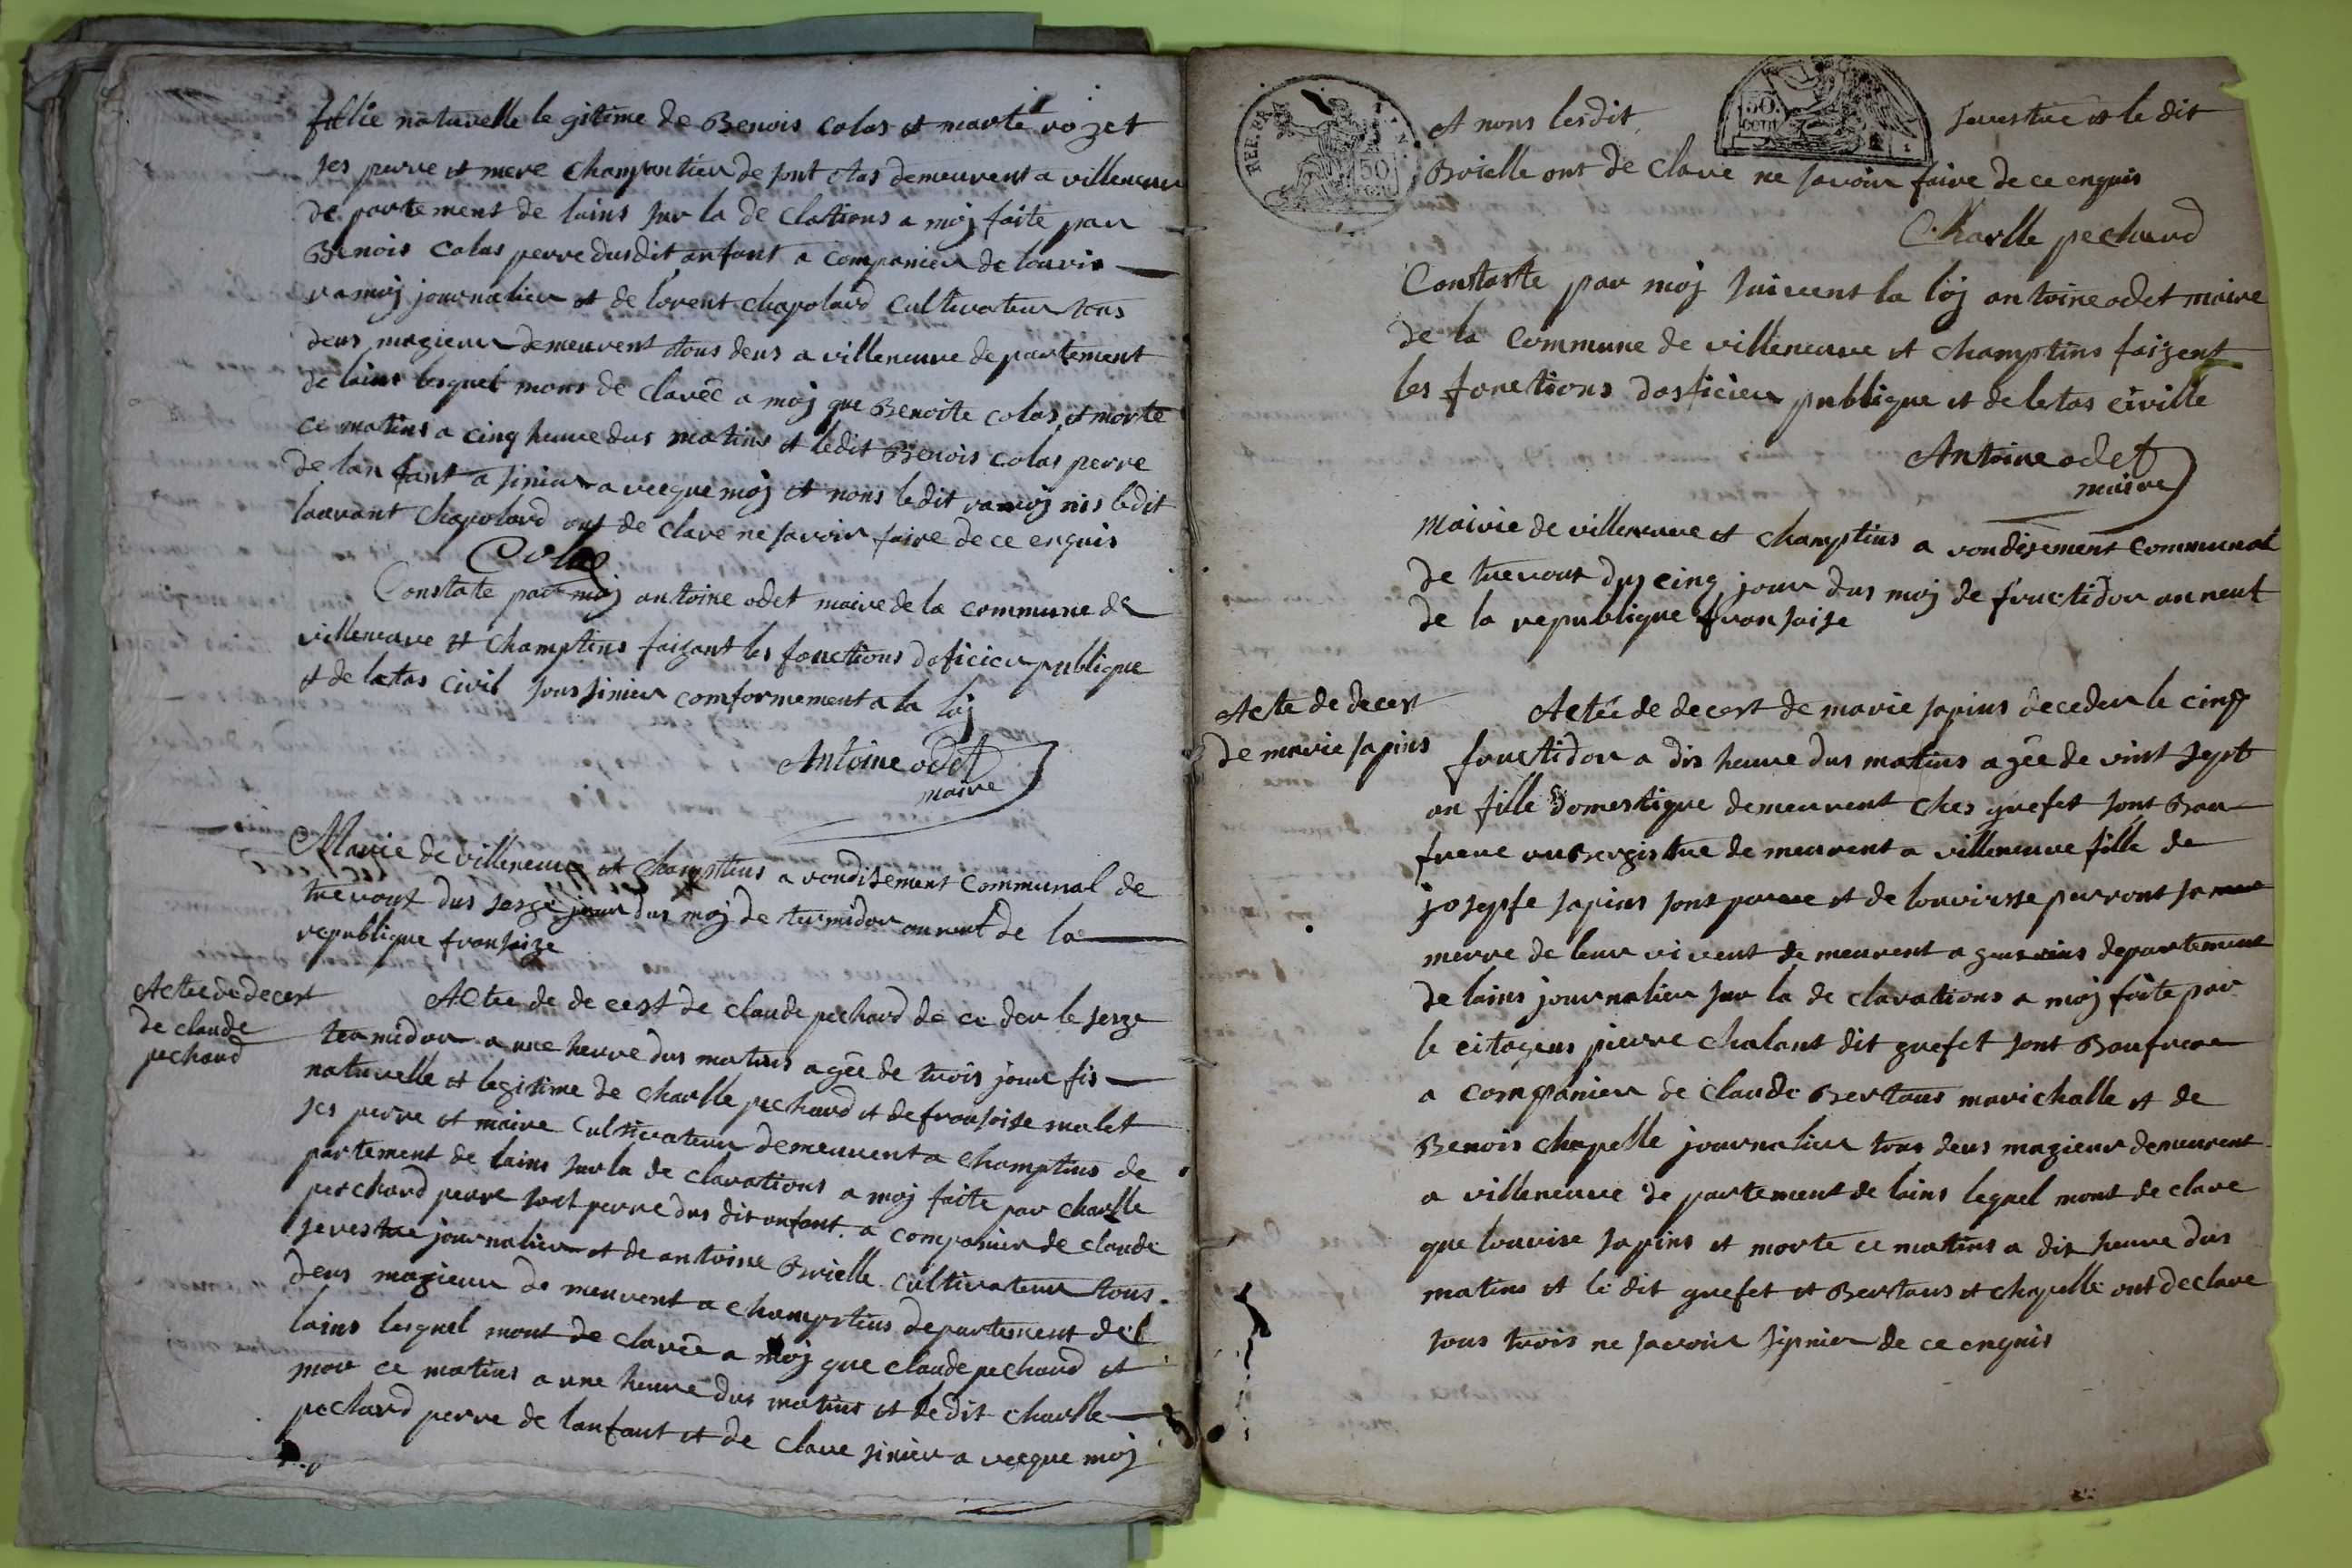 fillie naturelle le gitime de Benois colas et marte rozet
ses perre et mere charpantier de sont etas demeurent a villeneuve
de partement de lains sur la de clations a moj faite par
Benois Colas perre dusdit anfant a companier de louvis
ramoj journalier et de lorent chapolard cultivateur tous
deus magieur demeurent tous deus a villeneuve de partement
de lains lesquel mons de claréé a moj que Benoite colas et morte
ce matins a cinq heure dus matins et ledit Benois colas perre
de lan fant a sinier a vecque moj et nons ledit ramoj nis ledit
laurant chapolard ont de clare ne savoir faire de ce enquis
Colas
Constate par moj antoine odet maire de la commune de
villeneuve et champtins faizant les fonctions doficier publique
et de letas civil sous sinier comformement a la loj
Antoine odet
maire
Marie de villeneuve et champtins a rondisement communal de
trevout dus sesze jour dus moj de termidor an neut de la
republique fransaize
Acte de decest
de claude
pechard
Acte de de cest de claude pechard de ce der le sesze
termidor a une herre dus matins agée de trois jour fis
naturelle et legitime de charlle pechard et de fransoise malet
ses perre et maire cultivateur demeurent a champtins de
partement de lains sur la de clarations a moj faite par charlle
perchard perre sont perre dus dit anfant a companier de claude
servestre journalier et de antoine Brielle cultivateur tous
deus magieur de meurent a champtins departement de l
lains lesquel mont de clarée a moj que claude pechard et
mor ce matins a une heure dus matins et ledit charlle
pechard perre de lanfant et de clare sinier a vecque moj
REP. FRA 50 CENT
50 CENT
A nons lesdit servestre et le dit
Brielle ont de clare ne savoir faire de ce enquis
Charlle pechard
Constaste par moj suivent la loj antoine odet maire
de la commune de villeneuve et champtins faizent
les fonctions dosficier publique et de letas civille
Antoine odet
maire
Mairie de villeneuve et champtins a rondisement communal
de trevout dus cinq jour dus moj de fructidor an neut
de la republique fransaise
Acte de decest
de marie sapins
Actée de decest de marie sapins deceder le cinq
fructidor a dis heure dus matins agée de vint sept
an fille domestique demeurent ches grefet sont Bau
frere aubergistre de meurent a villeneuve fille de
josepfe sapins sont perre et de louvisse perront sa
merre de leur vivent de meurent a departement
de lains journalier sur la de clarations a moj faite par
le citogens pierre chalant dit grefet sont Baufrere
a companier de claude Bertous marichalle et de
Benois chapelle journalier tous deus magieur demeurent
a villeneuve de partement de lains lequel mont de clare
que louvise sapins et morte ce matins a dis heure dus
matins et le dit grefet et Bertous et chapelle ont declare
tous trois ne savoir signier de ce enquis